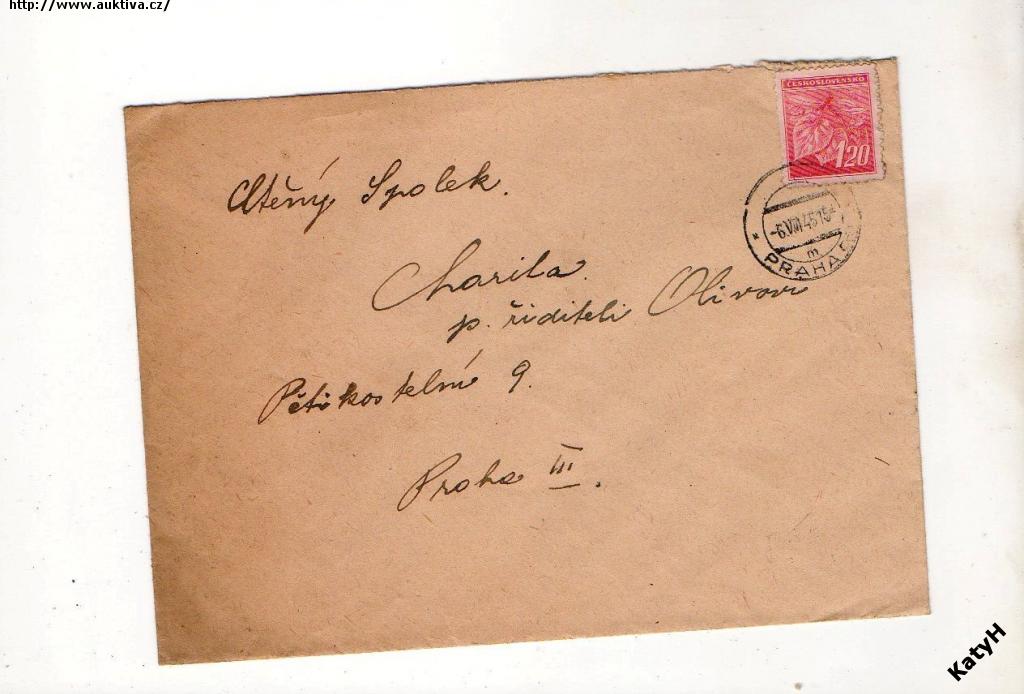 http://www.auktiva.cz/
ČESKOSLOVENSKO
1.20
-6.VIII 45 15-
m
PRAHA
Ctěný Spolek.
Charita.
p. řiditeli Olivovi
Pětikostelní 9.
Praha III.
KatyH